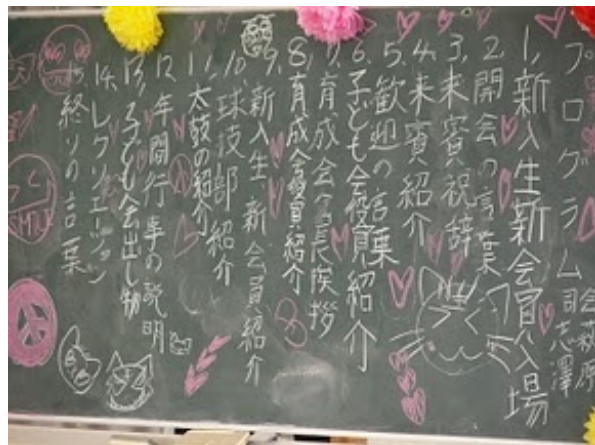 プログラム
司会 萩原
志澤
1、新入生新会員入場
2、開会の言葉
3、来賓祝辞
4、来賓紹介
5、歓迎の言葉
6、子ども会役員紹介
7、育成会会長挨拶
8、育成会役員紹介
9、新入生、新会員紹介
10、球技部紹介
11、太鼓の紹介
12、年間行事の説明
13、子ども会出し物
14、レクリエーション
15、終りの言葉